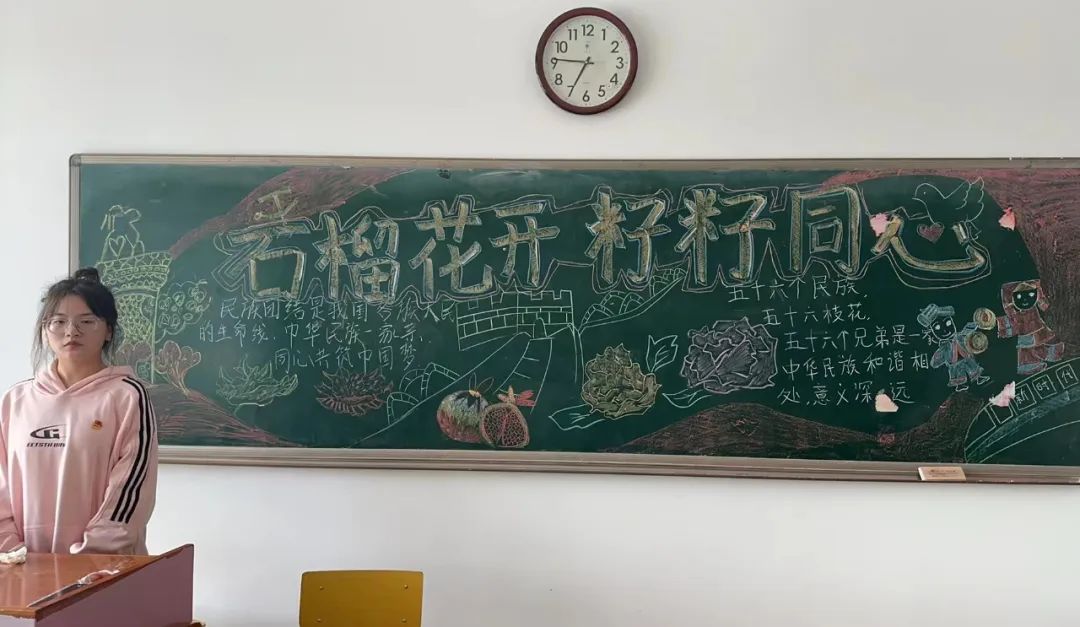 12
11
1
10
2
9
3
8
4
7
5
6
石榴花开 籽籽同心
民族团结是我国各族人民
的生命线、中华民族一家亲、
同心共筑中国梦
五十六个民族、
五十六枝花,
五十六个兄弟是一家
中华民族和谐相
处,意义深远
新时代